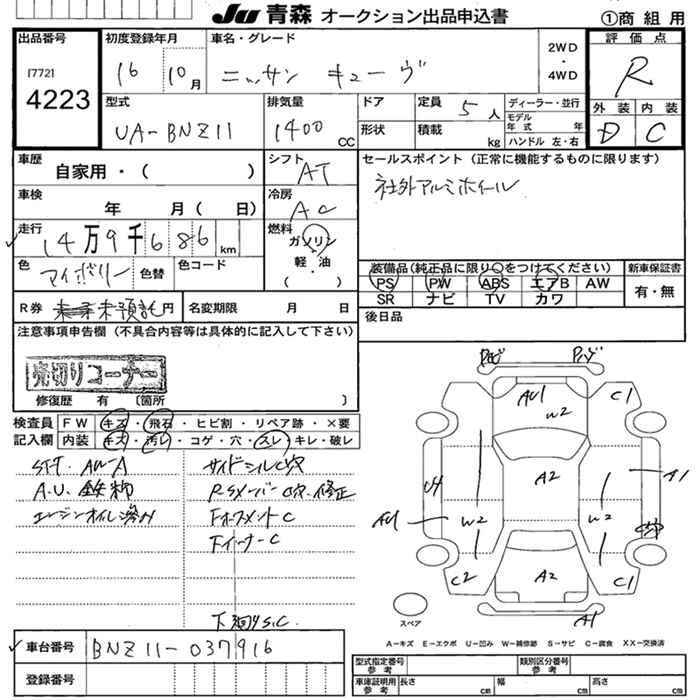 JU 青森 オークション出品申込書
①商組用
出品番号
17721
4223
初度登録年月
16 10月
車名・グレード
ニッサン キューヴ
2WD
・
4WD
評価点
R
外装 内装
D C
型式
UA-BNZ11
排気量
1400 CC
ドア
形状
定員 5人
積載 kg
ディーラー・並行
モデル年式 年式
ハンドル 左・右
車歴
自家用・( )
シフト
AT
セールスポイント(正常に機能するものに限ります)
社外アルミホイール
車検
年 月( 日)
冷房
AC
走行
14万9千686 km
燃料
ガソリン
軽・油
( ・ )
色
マイボリー
色替
色コード
装備品(純正品に限り○をつけてください)
PS PW ABS エアB AW
SR ナビ TV カワ
新車保証書
有・無
R券 未預託 円
名変期限 月 日
後日品
注意事項申告欄(不具合内容等は具体的に記入して下さい)
売切りコーナー
修復歴 有 (箇所 )
検査員記入欄
FW キズ・飛石・ヒビ割・リペア跡・×要
内装 キズ・汚レ・コゲ・穴・スレ・キレ・破レ
STT. AW-A
A.U. 鉄粉
エンジンオイル滲み
サイドシルC穴
RSメンバーC穴・修正
FオープメントC
FインナーC
下廻りS.C
AU1
W2
C1
A2
U4
A1
W2
W2
C2
A2
C1
A1
スペア
A=キズ E=エクボ U=凹み W=補修跡 S=サビ C=腐食 XX=交換済
車台番号
BNZ11-037916
登録番号
型式指定番号 参考
類別区分番号 参考
車庫証明用 参考
長さ cm
幅 cm
高さ cm